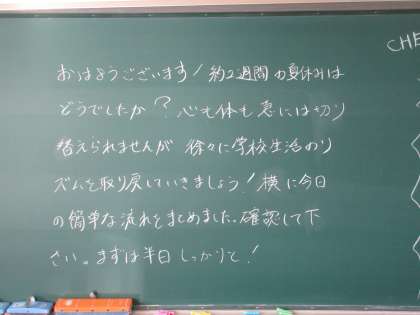 おはようございます!約2週間の夏休みは
どうでしたか?心も体も急には切り
替えられませんが徐々に学校生活のリ
ズムを取り戻していきましょう!横に今日
の簡単な流れをまとめました。確認して下
さい。まずは半日しっかりと!
CHE